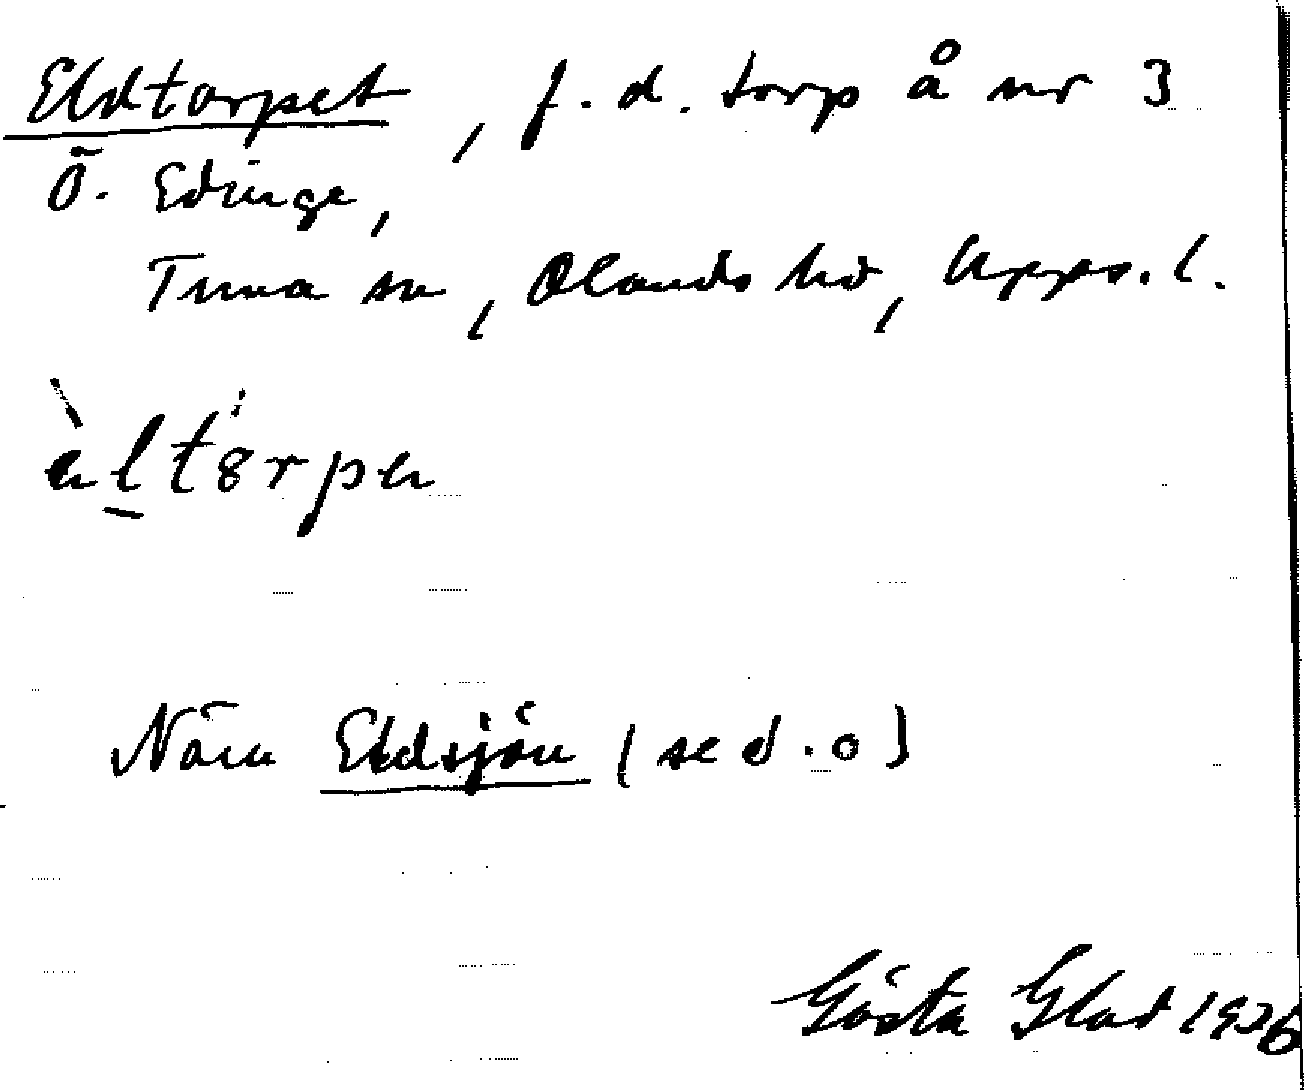 Eldtorpet, f. d. torp å nr 3
Ö. Edinge,
Tuna sn, Olands hd, Upps. l.
æ̀lt8rpeṇ
Näm Eldsjön (se d. o)
Gösta Glad 1926